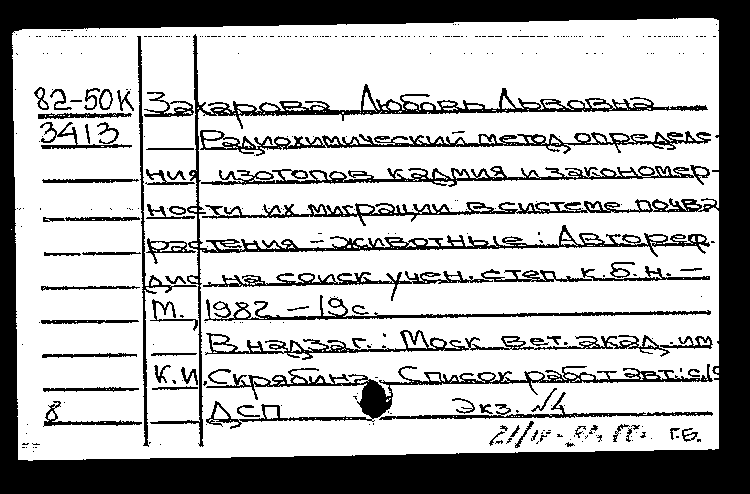 82-50К Захарова, Любовь Львовна
3413 Радиохимический метод определе-
ния изотопов кадмия и закономер-
ности их миграции в системе почва
растения - животные : Автореф.
дис. на соиск. учен. степ. к. б. н. —
М., 1982. — 19 с.
В надзаг.: Моск. вет. акад. им.
К.И. Скрябина. Список работ авт.: с. 19
8 ДСП Экз. №4
Г.Б.